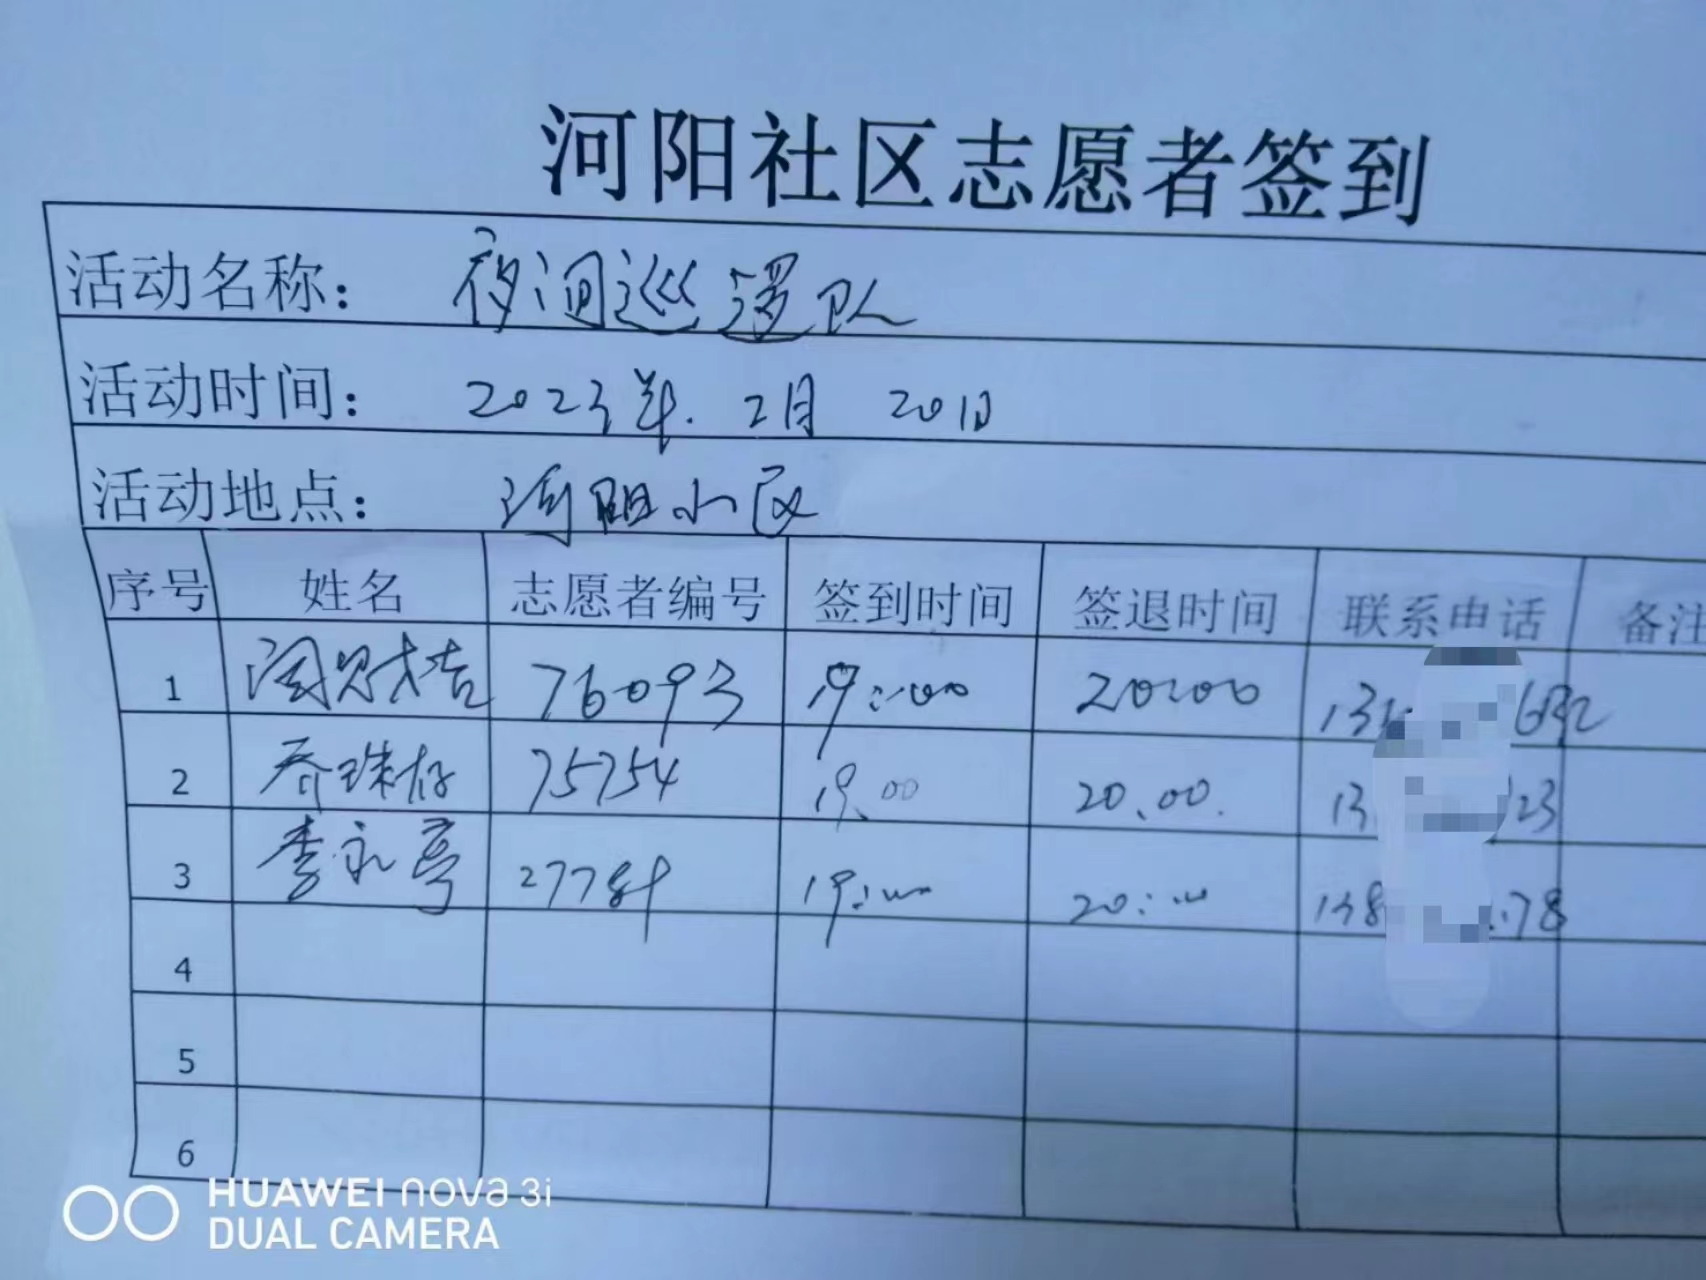 河阳社区志愿者签到
活动名称： 夜间巡逻队
活动时间： 2023年.2月 20日
活动地点： 河阳小区
序号 姓名 志愿者编号 签到时间 签退时间 联系电话 备注
1 76093 19:00 20:00
2 乔珠存 75754 19.00 20.00.
3 李永亭 19:00 20:00
4
5
6
HUAWEI nova 3i
DUAL CAMERA